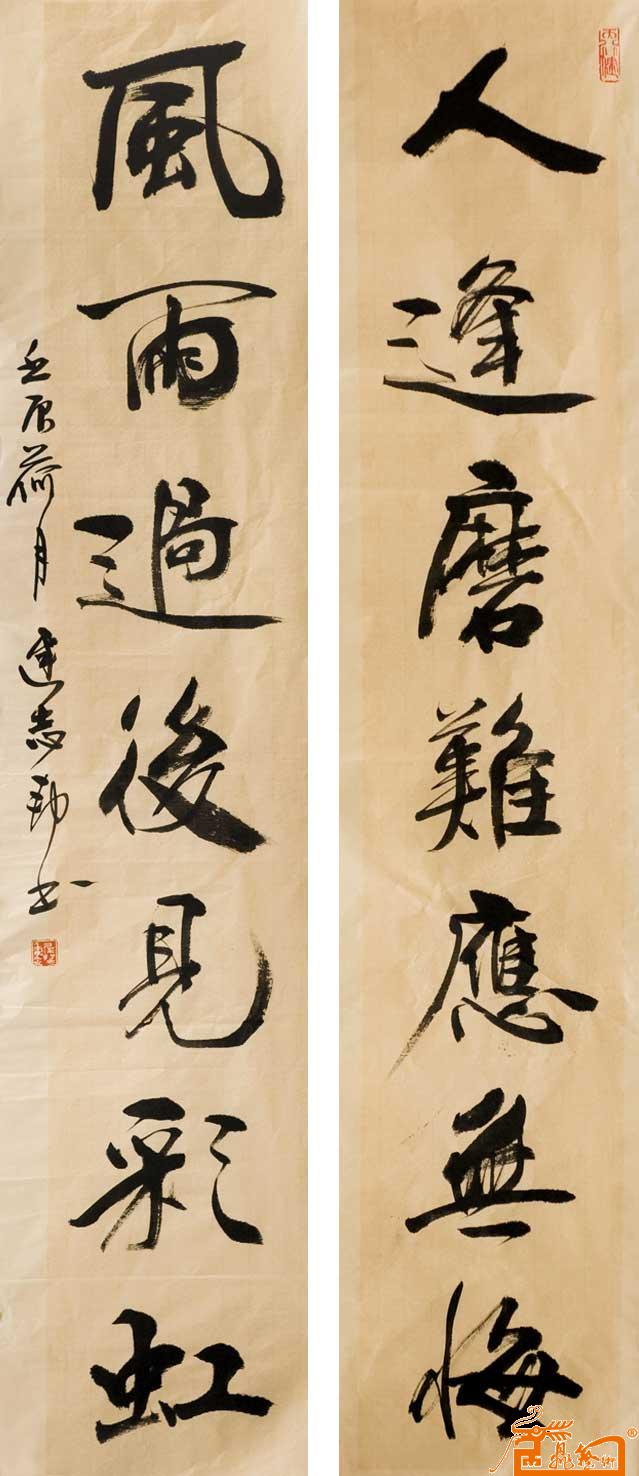 人逢磨難應無悔
風雨過後見彩虹
壬辰荷月 達志勤书